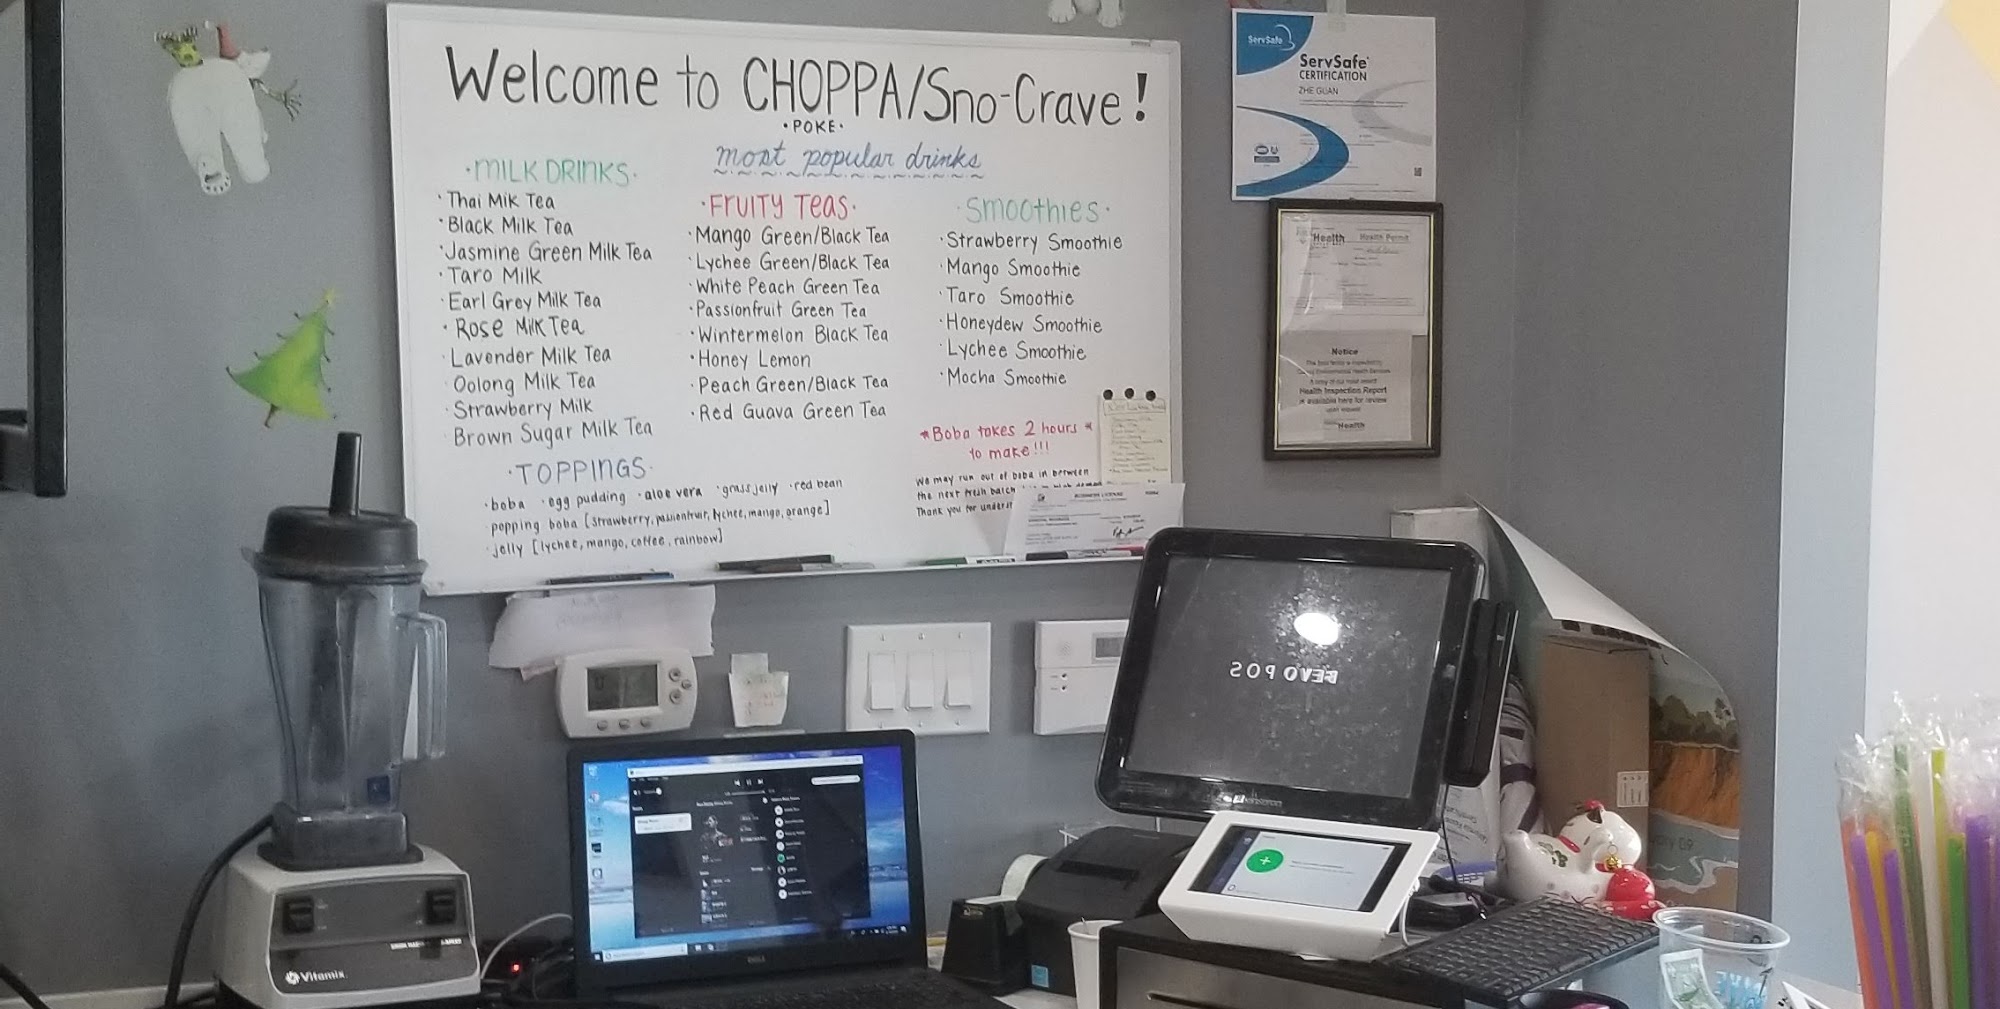 Welcome to CHOPPA/Sno-Crave!
·POKE·
most popular drinks
·MILK DRINKS·
·Thai Mik Tea
·Black Milk Tea
·Jasmine Green Milk Tea
·Taro Milk
·Earl Grey Milk Tea
·Rose Milk Tea
·Lavender Milk Tea
·Oolong Milk Tea
·Strawberry Milk
·Brown Sugar Milk Tea
·FRUITY TEAS·
·Mango Green/Black Tea
·Lychee Green/Black Tea
·White Peach Green Tea
·Passionfruit Green Tea
·Wintermelon Black Tea
·Honey Lemon
·Peach Green/Black Tea
·Red Guava Green Tea
·Smoothies·
·Strawberry Smoothie
·Mango Smoothie
·Taro Smoothie
·Honeydew Smoothie
·Lychee Smoothie
·Mocha Smoothie
*Boba takes 2 hours*
to make!!!
We may run out of boba in between
the next fresh batch
Thank you for underst
·TOPPINGS·
·boba ·egg pudding ·aloe vera ·grass jelly ·red bean
·popping boba [strawberry, passionfruit, lychee, mango, orange]
·jelly [lychee, mango, coffee, rainbow]
BUSINESS LICENSE
ServSafe
ServSafe
CERTIFICATION
ZHE GUAN
Health
Health Permit
Notice
Health Inspection Report
is available here for review
upon request
Health
BEVO POS
Vitamix
DELL